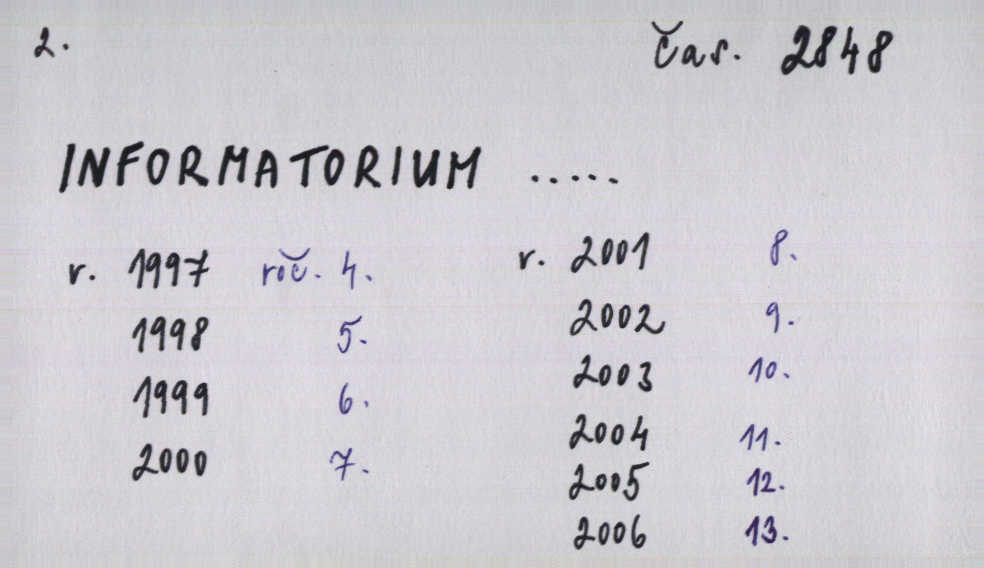 2. čas. 2848
INFORMATORIUM .....
r. 1997 roč. 4. r. 2001 8.
1998 5. 2002 9.
1999 6. 2003 10.
2000 7. 2004 11.
2005 12.
2006 13.